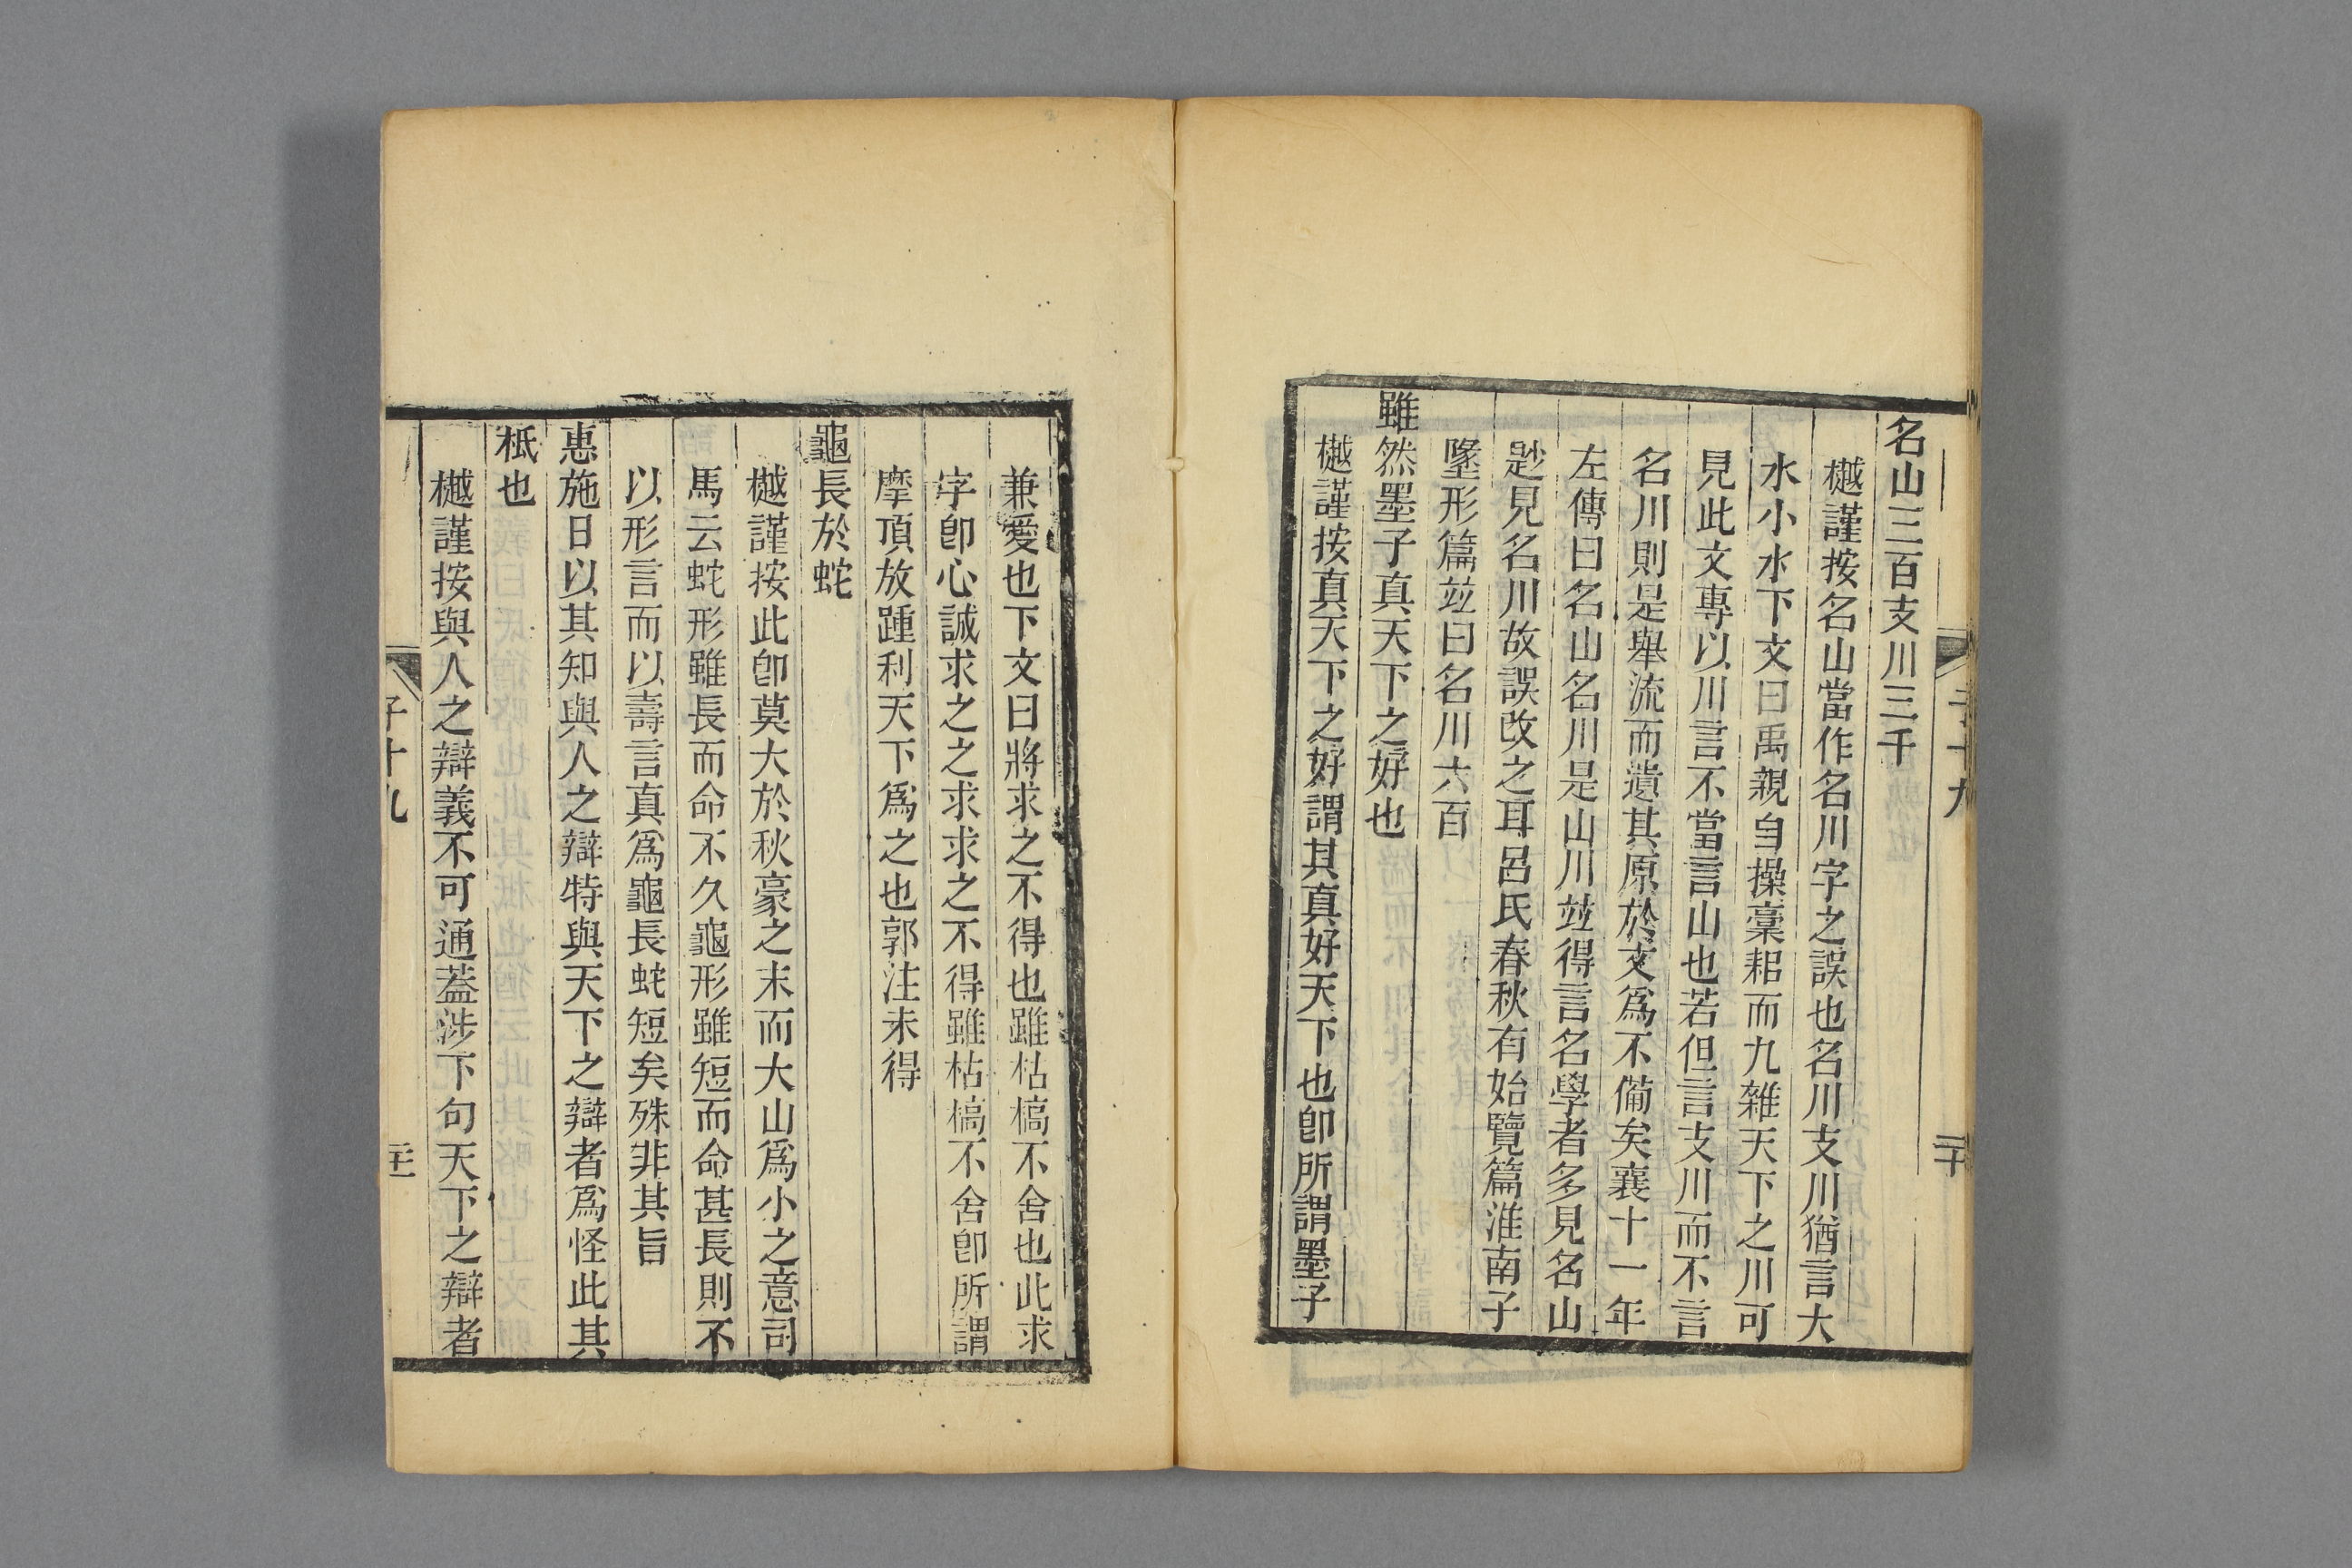 名山三百支川三千
樾謹按名山當作名川字之誤也名川支川猶言大
水小水下文曰禹親自操橐耜而九雜天下之川可
見此文專以川言不當言山也若但言支川而不言
名川則是舉流而遺其原於文爲不備矣襄十一年
左傳曰名山名川是山川竝得言名學者多見名山
尟見名川故誤改之耳呂氏春秋有始覽篇淮南子
墬形篇竝曰名川六百
雖然墨子真天下之好也
樾謹按真天下之好謂其真好天下也卽所謂墨子
兼愛也下文曰將求之不得也雖枯槁不舍也此求
字卽心誠求之之求求之不得雖枯槁不舍卽所謂
摩頂放踵利天下爲之也郭注未得
龜長於蛇
樾謹按此卽莫大於秋豪之末而大山爲小之意司
馬云蛇形雖長而命不久龜形雖短而命甚長則不
以形言而以壽言真爲龜長蛇短矣殊非其旨
惠施日以其知與人之辯特與天下之辯者爲怪此其
柢也
樾謹按與人之辯義不可通蓋涉下句天下之辯者
子十九